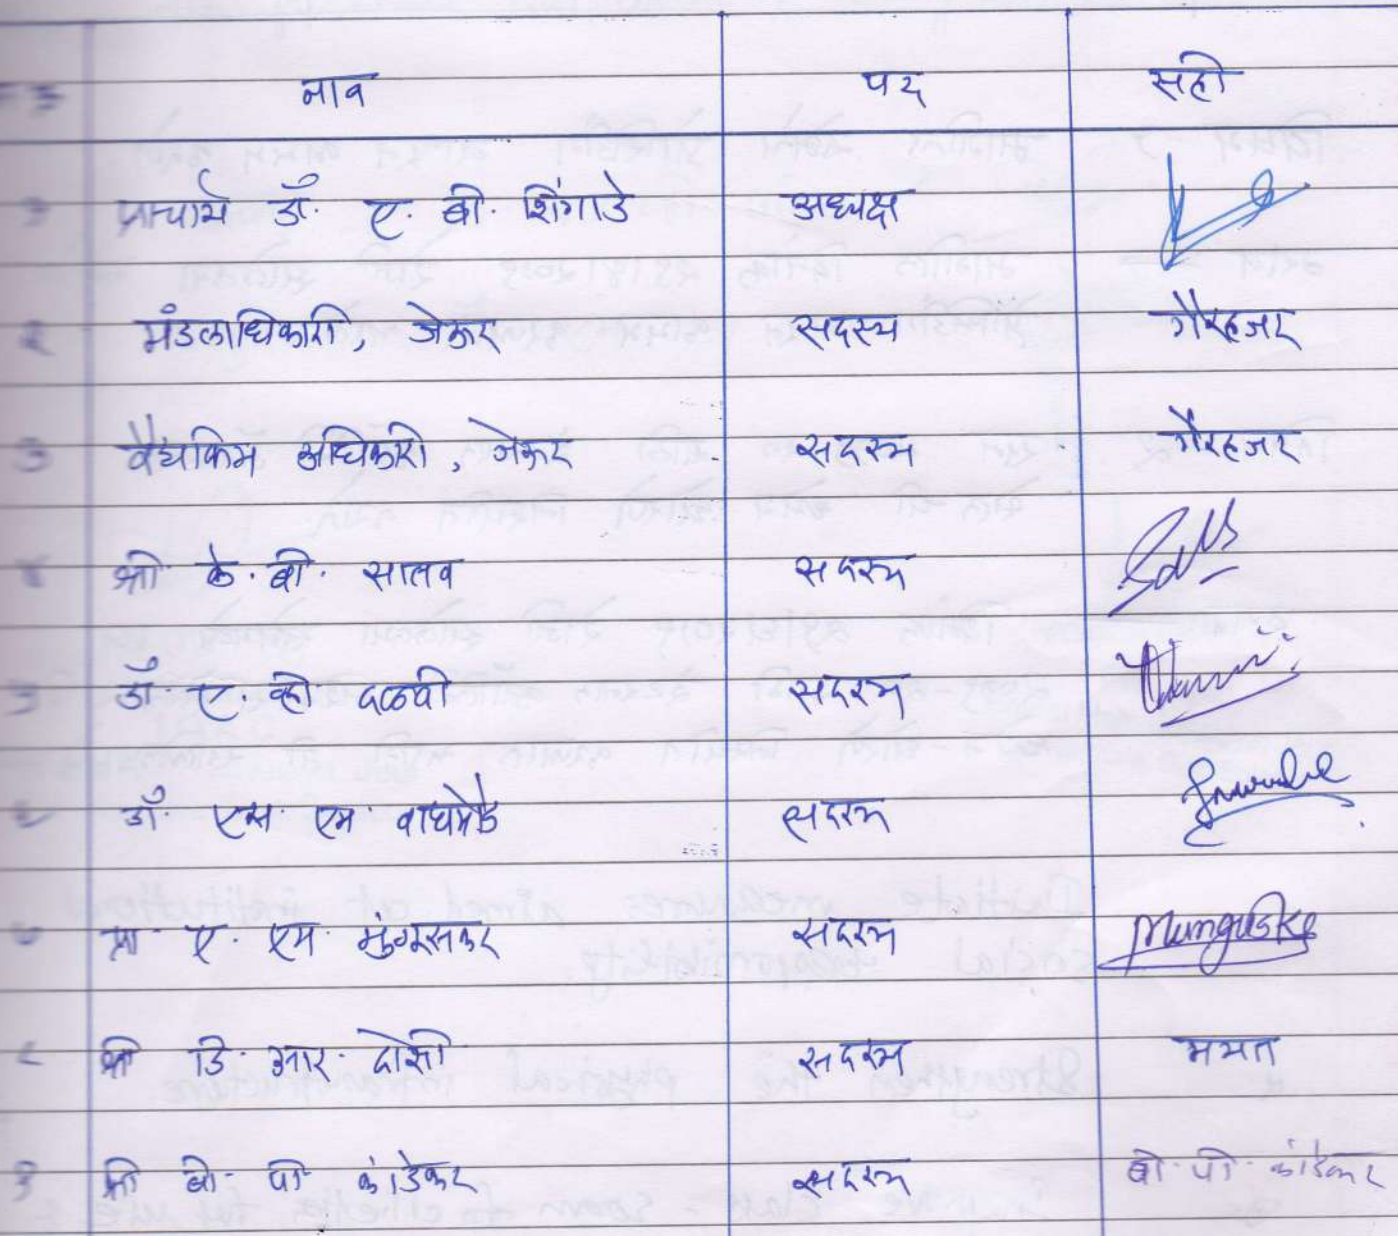 नाव पद सही
१ प्राचार्य डॉ. ए. बी. शिंगाडे अध्यक्ष
२ मंडलाधिकारी, जेऊर सदस्य गैरहजर
३ वैद्यकिय अधिकारी, जेऊर सदस्य गैरहजर
४ श्री के. बी. सातव सदस्य
५ डॉ ए व्ही दळवी सदस्य
६ डॉ. एस एम वाघमोडे सदस्य
७ प्रा ए. एम. मुंगूसकर सदस्य
८ श्री डि. आर. दोसी सदस्य मयत
९ श्री बी. पी कांडेकर सदस्य बी. पी. कांडेकर